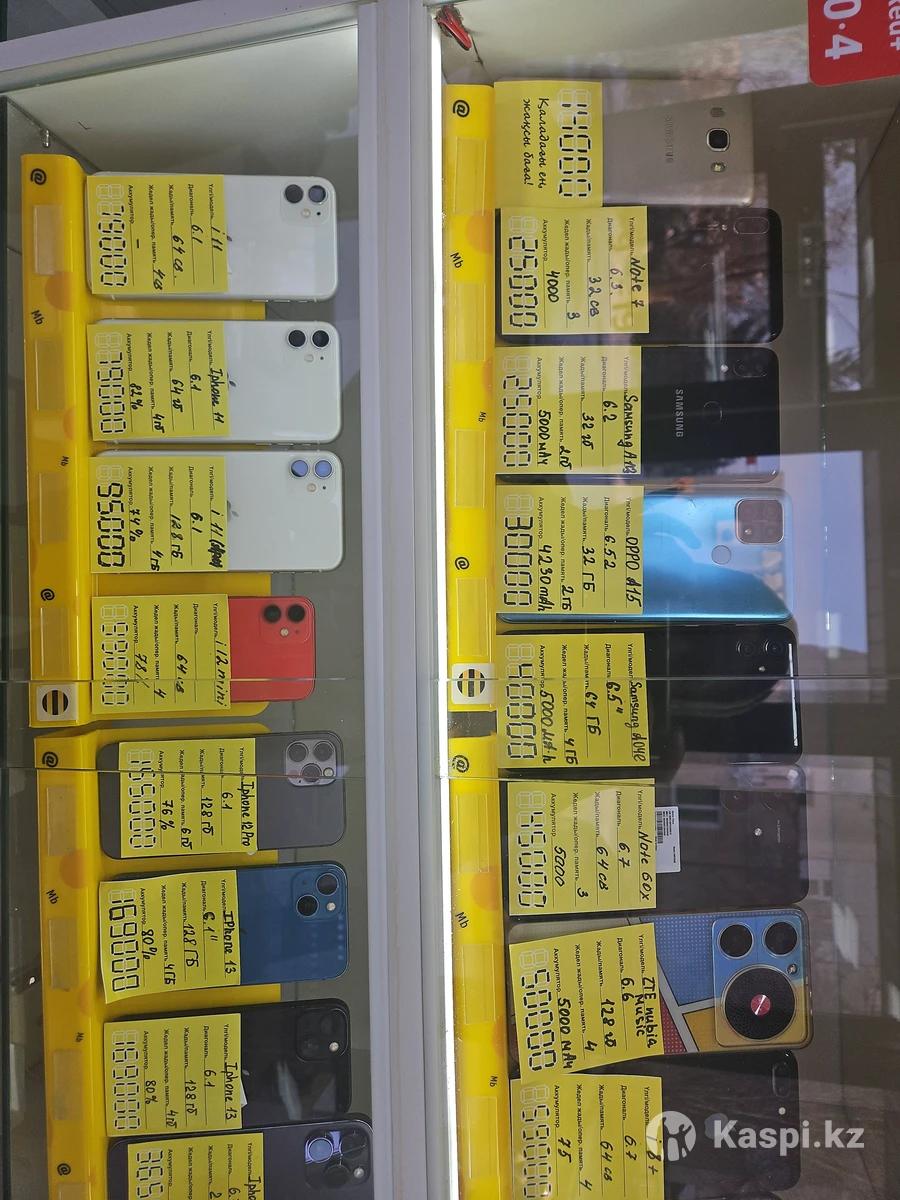 @
Mb
Mb
@
Үлгі/модель i 11
Диагональ 6.1
Жады/память 64 св
Жедел жады/опер. память 4св
Аккумулятор —
Үлгі/модель Iphone 11
Диагональ 6.1
Жады/память 64 гб
Жедел жады/опер. память 4гб
Аккумулятор 82%
79000
Үлгі/модель i 11
Диагональ 6.1
Жады/память 128 ГБ
Жедел жады/опер. память 4ГБ
Аккумулятор 74%
95000
Үлгі/модель i 12 mini
Диагональ
Жады/память 64 св
Жедел жады/опер. память 4
Аккумулятор
@
Mb
Mb
@
Iphone 12 Pro
6.1
128 гб
Жедел жады/опер. память 6 гб
Аккумулятор 76%
155000
IPhone 13
Диагональ 6.1"
Жады/память 128 ГБ
Жедел жады/опер. память 4 ГБ
Аккумулятор 80%
169000
Iphone 13
Диагональ 6.1
Жады/память 128 гб
Жедел жады/опер. память 4 гб
Аккумулятор 80%
@
Mb
Mb
@
Қаладағы ең
жақсы баға!
14000
SAMSUNG
Үлгі/модель Note 7
Диагональ 6.3
Жады/память 32 св
Жедел жады/опер. память 3
Аккумулятор 4000
25000
Үлгі/модель Samsung
Диагональ 6.2
Жады/память 32 гб
Жедел жады/опер. память 2 гб
Аккумулятор 5000 мАч
25000
SAMSUNG
Үлгі/модель OPPO A15
Диагональ 6.52
Жады/память 32 ГБ
Жедел жады/опер. память 2 ГБ
Аккумулятор 4230 mAh
30000
Үлгі/модель Samsung A04e
Диагональ 6.5"
Жады/память 64 ГБ
Жедел жады/опер. память 4 ГБ
Аккумулятор 5000
40000
@
Mb
Mb
Үлгі/модель Note 60x
Диагональ 6.7
Жады/память 64 св
Жедел жады/опер. память 3
Аккумулятор 5000
45000
Үлгі/модель ZTE nubia
Music
Диагональ 6.6
Жады/память 128 гб
Жедел жады/опер. память 4
Аккумулятор 5000 мАч
50000
Үлгі/модель 8+
Диагональ 6.7
Жады/память 64 св
Жедел жады/опер. память 4
Аккумулятор 75
0·4
Kaspi.kz